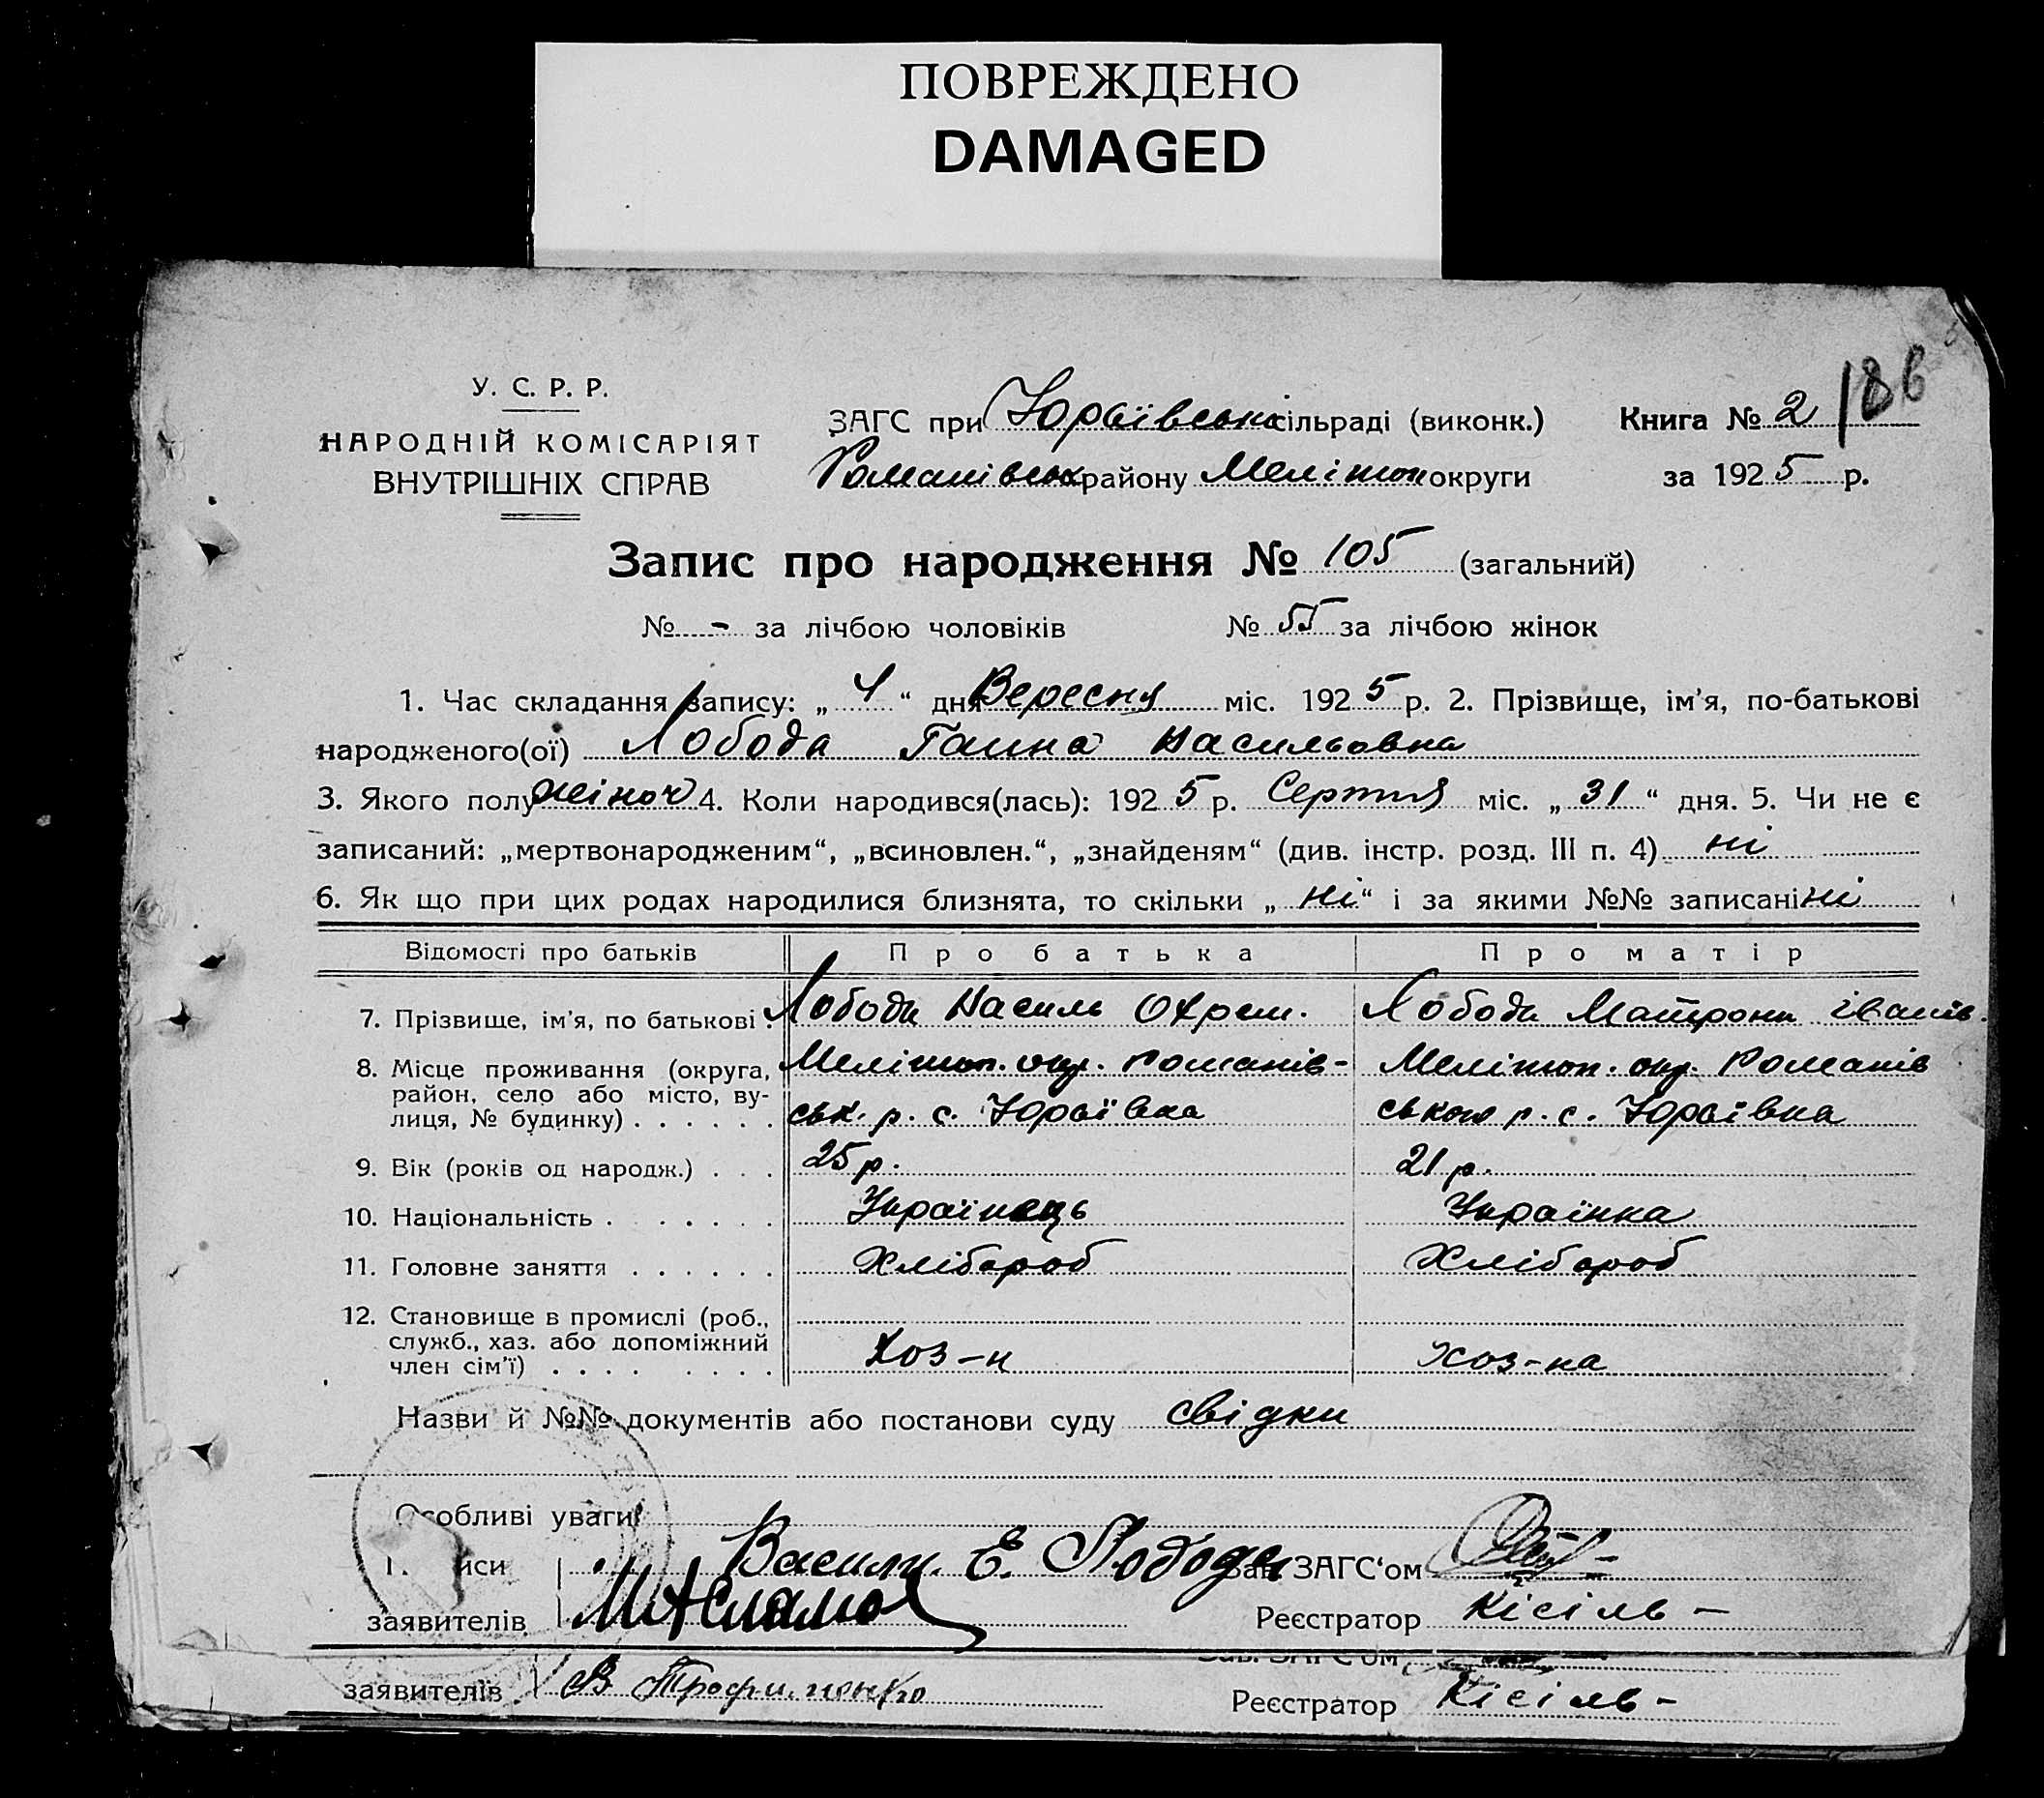 ПОВРЕЖДЕНО
DAMAGED
У. С. Р. Р.
НАРОДНІЙ КОМІСАРІЯТ
ВНУТРІШНІХ СПРАВ
ЗАГС при Юрʼївській сільраді (виконк.)
Романівськ району Мелітоп округи
Книга № 2
186
за 1925 р.
Запис про народження № 105 (загальний)
№ - за лічбою чоловіків № 55 за лічбою жінок
1. Час складання запису: „ 4 “ дня Вересня міс. 1925 р. 2. Прізвище, ім’я, по-батькові
народженого(ої) Лобода Ганна Васильовна
3. Якого полу жіноч 4. Коли народився(лась): 1925 р. Серпня міс. „ 31 “ дня. 5. Чи не є
записаний: „мертвонародженим“, „всиновлен.“, „знайденям“ (див. інстр. розд. III п. 4) ні
6. Як що при цих родах народилися близнята, то скільки „ ні “ і за якими №№ записані ні
Відомості про батьків Про батька Про матір
7. Прізвище, ім’я, по батькові . Лобода Василь Охрем. Лобода Матрона Іванів.
8. Місце проживання (округа, Мелітоп. окр. Романів- Мелітоп. окр. Романів
район, село або місто, ву-
лиця, № будинку) . . . . . . ськ. р. с. Юрʼївка ською р. с. Юрʼївка
9. Вік (років од народж.) . . . 25 р. 21 р.
10. Національність . . . . . . . Українець Українка
11. Головне заняття . . . . . . Хлібороб Хлібороб
12. Становище в промислі (роб.,
служб., хаз. або допоміжний
член сім’ї) . . . . . . . . Хоз-н хоз-ка
Назви й №№ документів або постанови суду свідки
Особливі уваги
иси Василь Е. Лобода Зав. ЗАГС‘ом
заявителів Реєстратор Кісіль -
Зав. ЗАГС‘ом
заявителів В Трофименко Реєстратор Кісіль -